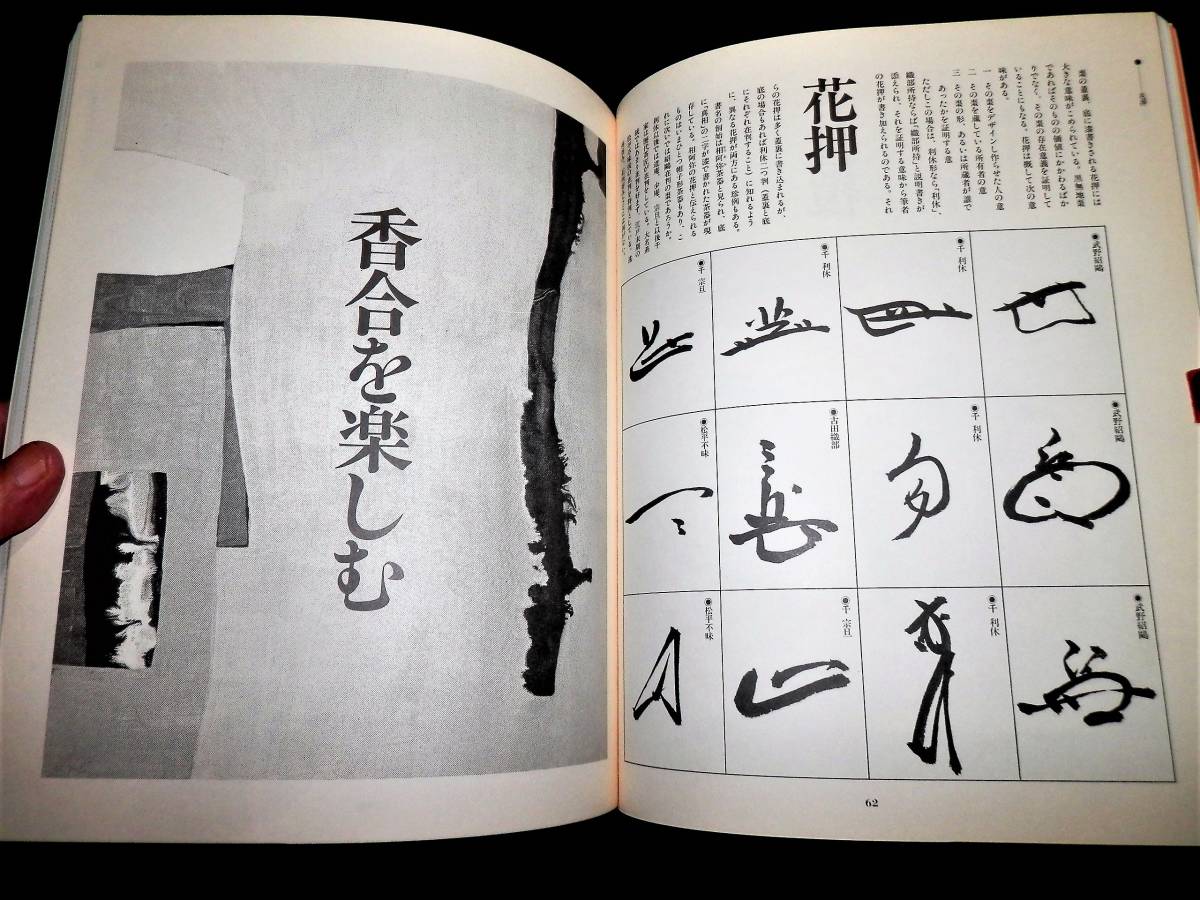 棗の蓋裏、底に漆書きされる花押には
大きな意味がこめられている。黒無地棗
であればそのものの価値にかかわるばか
りでなく、その棗の存在意義を証明して
いることにもなる。花押は概して次の意
味がある。
一 その棗をデザインし作らせた人の意
二 その棗を蔵している所有者の意
三 その棗の形、あるいは所蔵者が誰で
あったかを証明する意
ただしこの場合は、利休形なら「利休」、
織部所持ならば、「織部所持」と説明書きが
添えられ、それを証明する意味から筆者
の花押が書き加えられるのである。それ
花押
らの花押は多く蓋裏に書き込まれるが、
底の場合もあれば利休二つ判（蓋裏と底
にそれぞれ在判すること）に知れるよう
に、異なる花押が両方にある珍例もある。
書名の創始は相阿弥茶器と見られ、底
に「真相」の二字が漆で書かれた茶器が現
存している。相阿弥の花押と伝えられる
ものはいまひとつ帽子形茶器もあり、こ
れに次いでは紹鷗在判の棗であろうか。
◉武野紹鷗
◉千 利休
◉千 利休
◉千 宗旦
◉武野紹鷗
◉千 利休
◉古田織部
◉松平不昧
◉武野紹鷗
◉千 利休
◉千 宗旦
◉松平不昧
62
香合を楽しむ